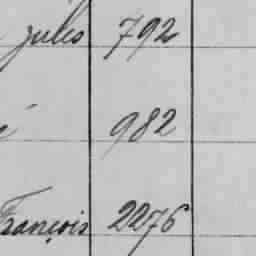 Jules 792
é 982
François 2276